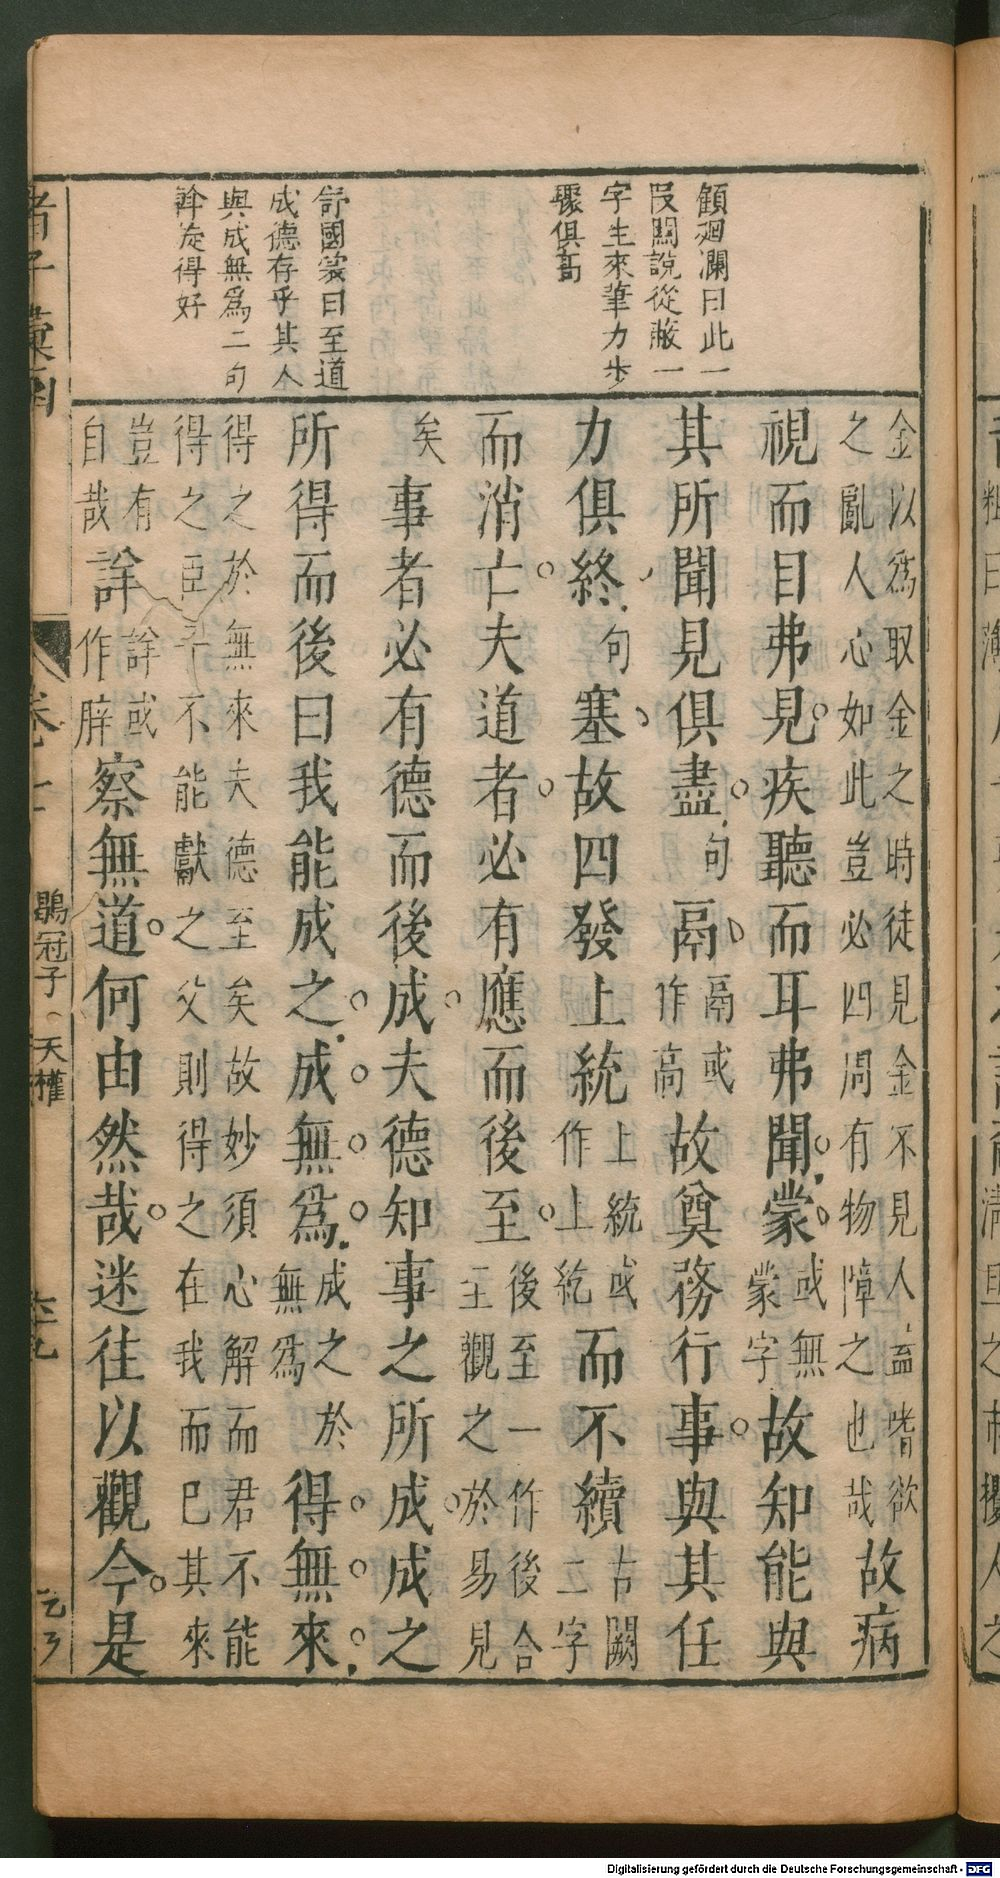 顧廻瀾曰此一
段關說從蔽一
字生來筆力步
驟俱高
舒國裳曰至道
成德存乎其人
與成無爲二句
斡旋得好
金以爲取金之時徒見金不見人盖嗜欲
之亂人心如此豈必四周有物障之也哉故病
視而目弗見疾聽而耳弗聞蒙或無
蒙字故知能與
其所聞見俱盡句鬲鬲或
作高故奠務行事與其任
力俱終句塞故四發上統上統或
作上紇而不續古闕
二字
而消亡夫道者必有應而後至後至一作後合
王觀之於易見
矣事者必有德而後成夫德知事之所成成之
所得而後曰我能成之成無爲成之於
無爲得無來
得之於無來夫德至矣故妙須心解而君不能
得之臣子不能獻之父則得之在我而已其來
豈有
自哉詳詳或
作辟察無道何由然哉迷往以觀今是
卷十一
鶡冠子
天權
Digitalisierung gefördert durch die Deutsche Forschungsgemeinschaft - DFG